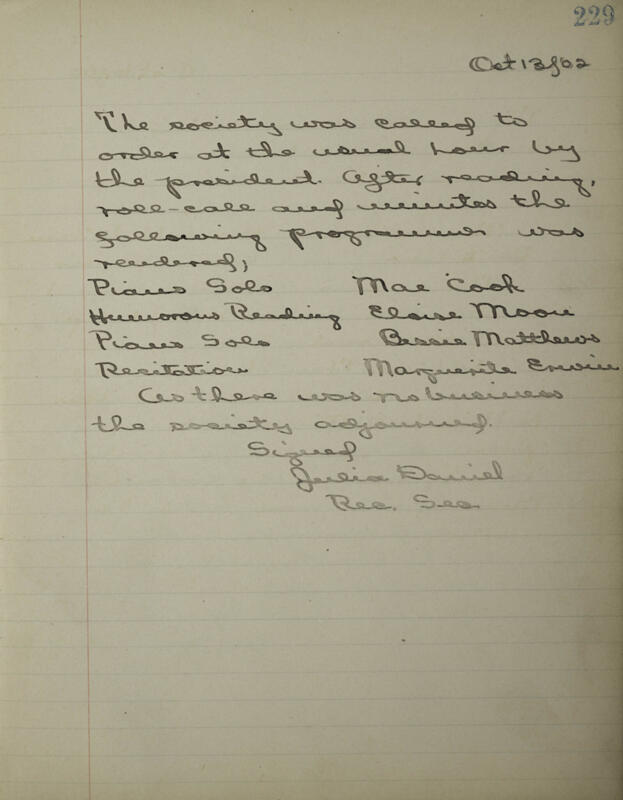 229
Oct 13/02
The society was called to
order at the usual hour by
the president. After reading,
roll-call and minutes the
following programme was
rendered;
Piano Solo Mae Cook
Humorous Reading Eloise Moon
Piano Solo Bessie Matthews
Recitation Marguerite Erwin
As there was no business
the society adjourned.
Signed
Julia Daniel
Rec. Sec.